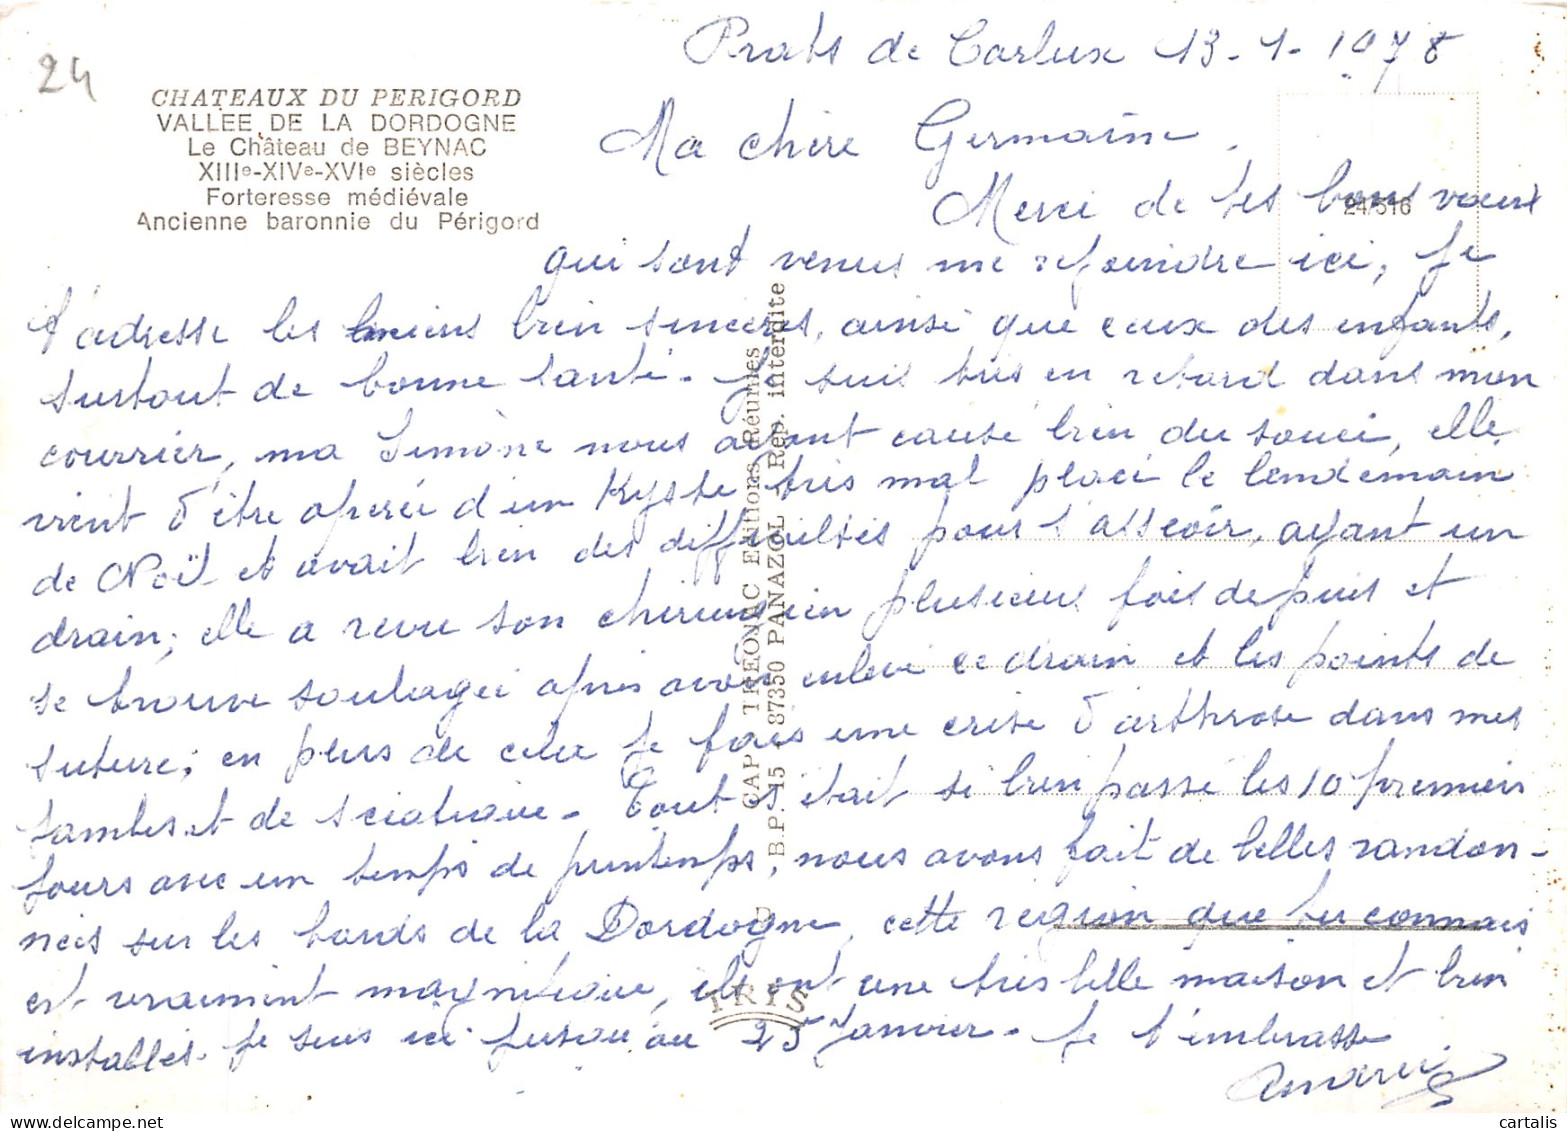 24
CHATEAUX DU PERIGORD
VALLEE DE LA DORDOGNE
Le Château de BEYNAC
XIIIe-XIVe-XVIe siècles
Forteresse médiévale
Ancienne baronnie du Périgord
24/516
CAP THEOJAC Editions Réunies
B.P. 15 - 87350 PANAZOL - Rep. interdite
IRIS
Prats de Carlux 13-1-1978
Ma chère Germaine.
Merci de tes bons vœux
qui sont venus me rejoindre ici, je
t'adresse les miens bien sincères, ainsi que ceux des enfants,
surtout de bonne santé. Je suis très en retard dans mon
courrier, ma Simone nous ayant causé bien du souci, elle
vient d'être opérée d'un Kyste très mal placé le lendemain
de Noël et avait bien des difficultés pour s'asseoir, ayant un
drain, elle a revu son chirurgien plusieurs fois depuis et
se trouve soulagée après avoir enlevé ce drain et les points de
suture; en plus de cela je fais une crise d'arthrose dans mes
jambes et de sciatique. Tout s'était si bien passé les 10 premiers
jours avec un temps de printemps, nous avons fait de belles randon-
nées sur les bords de la Dordogne, cette région que tu connais
est vraiment magnifique, ils ont une très belle maison et bien
installés. Je suis ici jusqu'au 25 Janvier. Je t'embrasse
cartalis